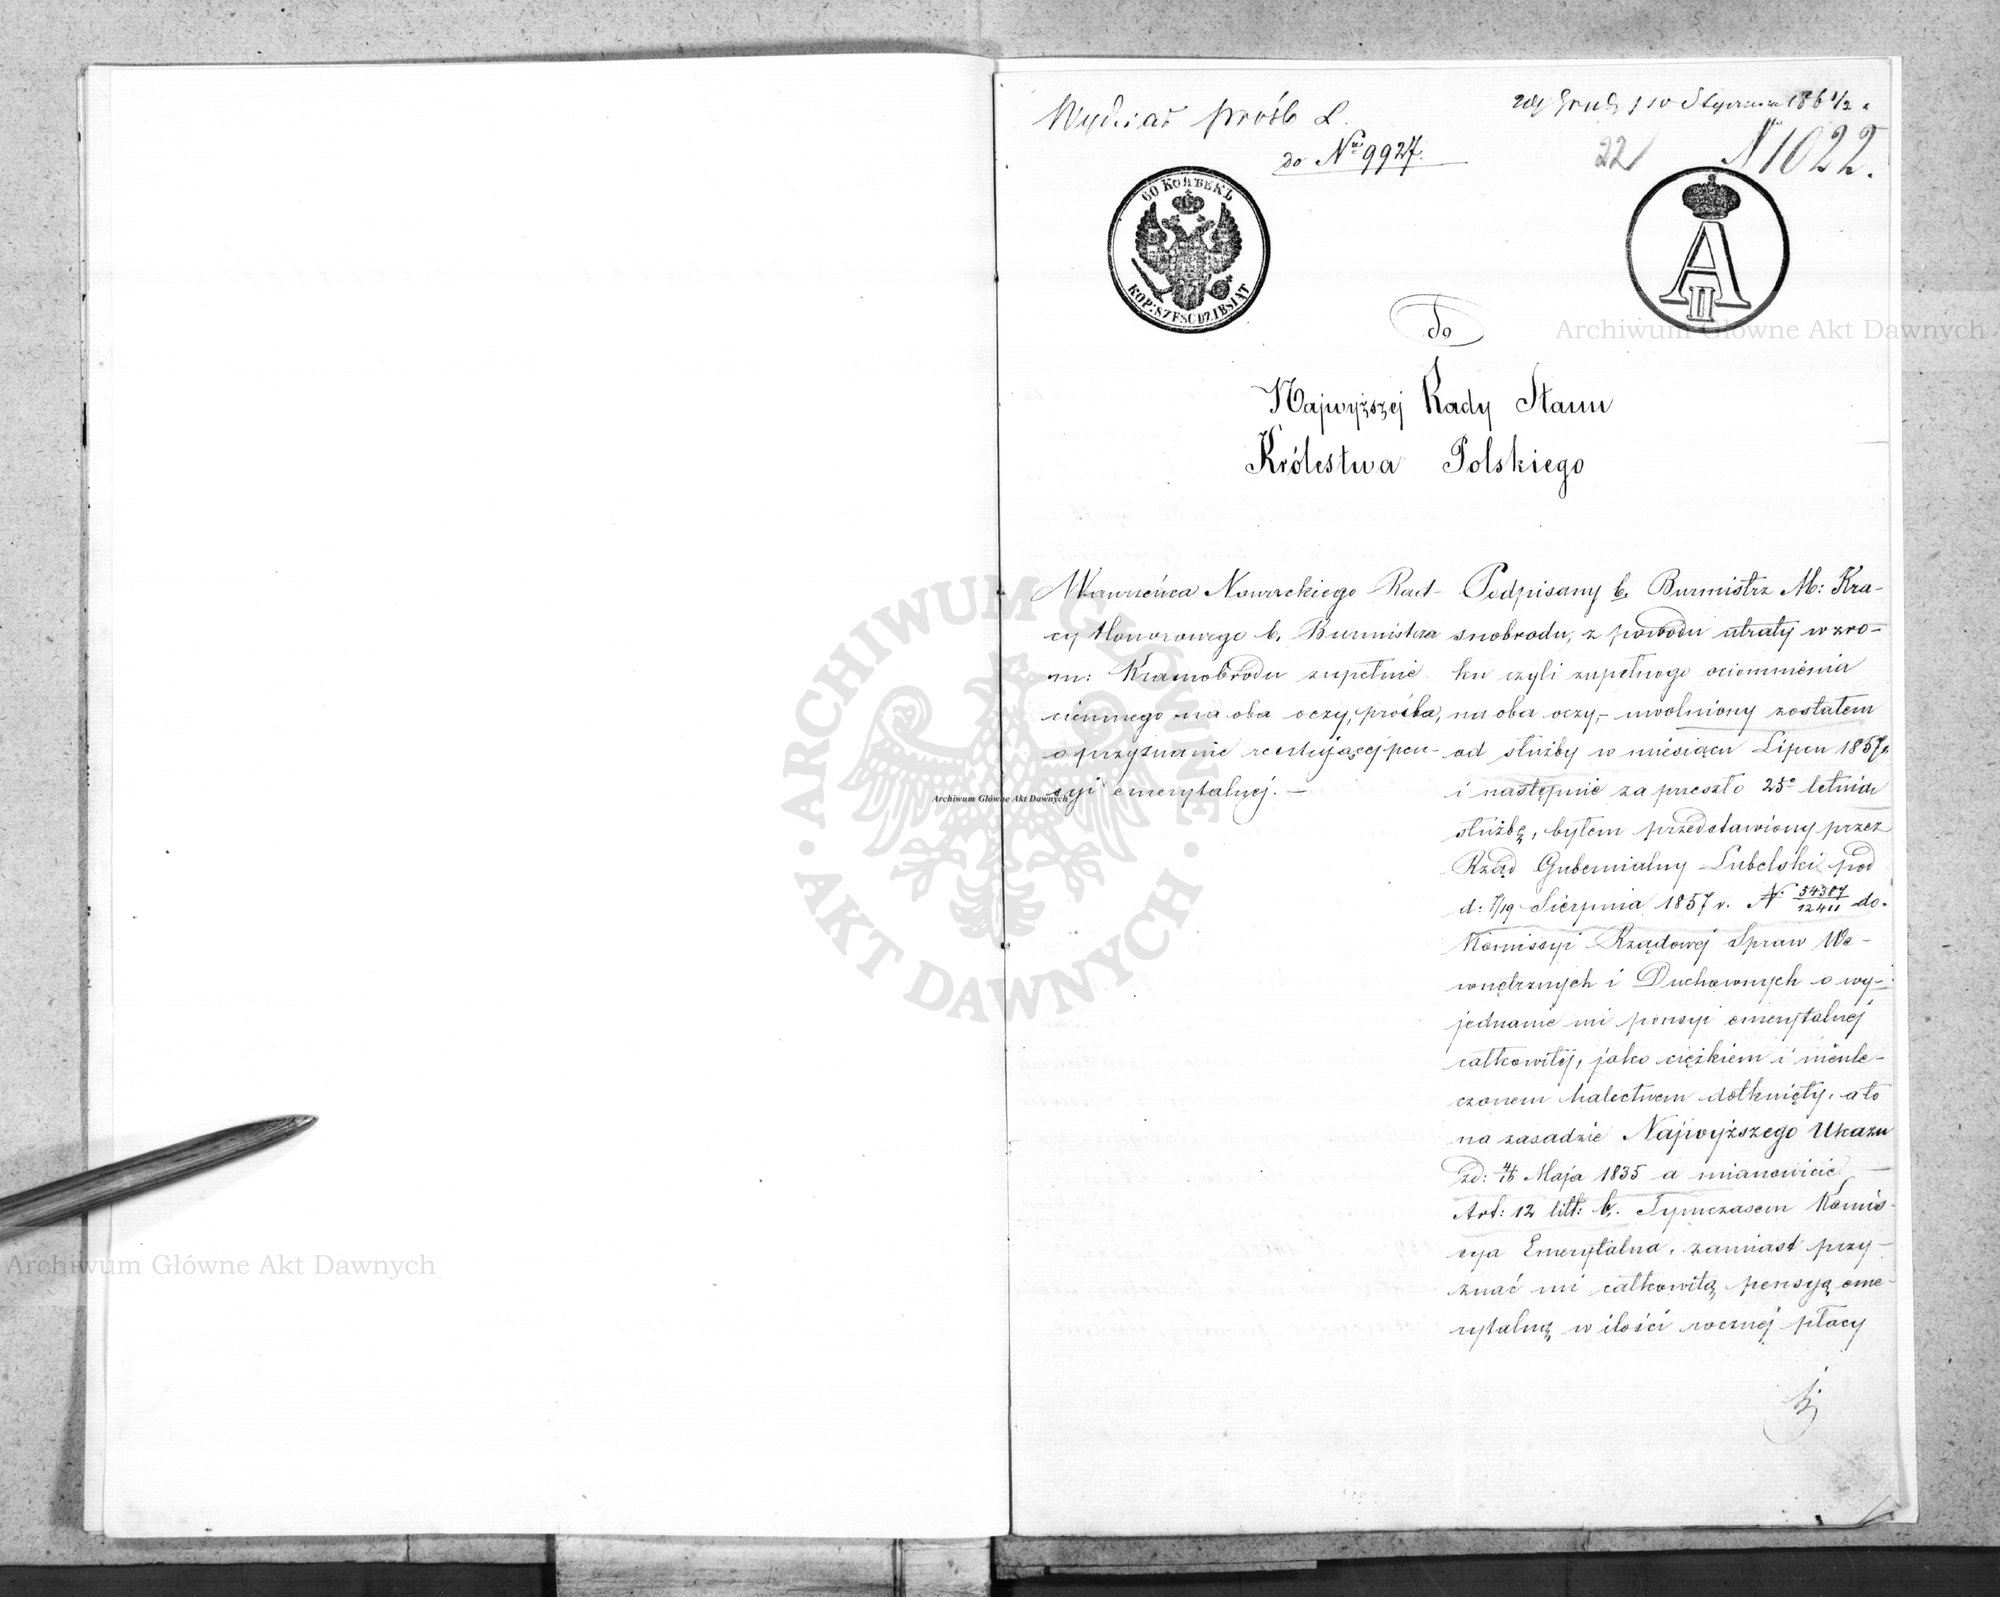 Wydział próśb L.
do Nru 9927.
29 Grud: / 10 Stycznia 186 1/2 r
22
N 1022.
60 КОПѢЕКЪ
KOP: SZEŚĆDZIESIĄT
A II
Do
Najwyższej Rady Stanu
Królestwa Polskiego
Wawrzeńca Nowickiego Rad-
cy Honorowego b. Burmistrza
m: Krasnobrodu zupełnie
ciemnego na oba oczy, prośba,
o przyznanie resztującej pen-
syi emerytalnej. —
Podpisany b. Burmistrz M: Kra-
snobrodu, z powodu utraty wzro-
ku czyli zupełnego ociemnienia
na oba oczy, – uwolniony zostałem
od służby w miesiącu Lipcu 1857 r.
i następnie za przeszło 25o letnią
służbę, byłem przedstawiony przez
Rząd Gubernialny Lubelski pod
d: 7/19 Sierpnia 1857 r. N 54387/12411 do
Komissyi Rządowej Spraw We-
wnętrznych i Duchownych o wy-
jednanie mi pensyi emerytalnej
całkowitej, jako ciężkiem i nieule-
czonem kalectwem dotknięty, a to
na zasadzie Najwyższego Ukazu
zd: 4/16 Maja 1835 a mianowicie
Art: 12 litt: b. Tymczasem Komis-
sya Emerytalna, zamiast przy-
znać mi całkowitą pensyą eme-
rytalną w ilości rocznej płacy
Archiwum Główne Akt Dawnych
Archiwum Główne Akt Dawnych
Archiwum Główne Akt Dawnych
ARCHIWUM GŁÓWNE · AKT DAWNYCH ·